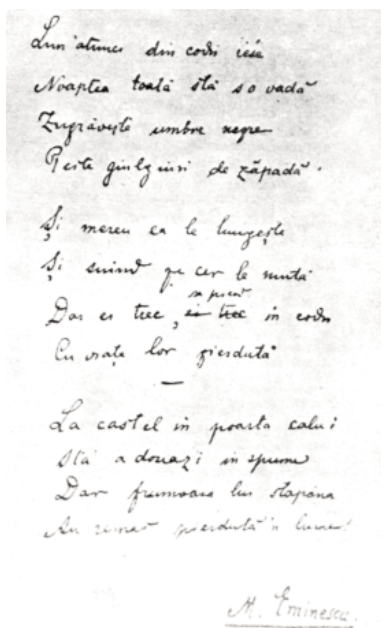 Lun'atunci din codri iese
Noaptea toată stă s'o vadă
Zugrăvește umbre negre
Peste giulgiuri de zăpadă.
Și mereu ea le lungește
Și suind pe cer le mută
se pierd
Dar ei trec, ei trec in codri
Cu viața lor pierdută
La castel in poarta calu'i
Stă a doua zi in spume
Dar frumoasa lui stăpâna
Au remas pierdută'n lume.
M. Eminescu.